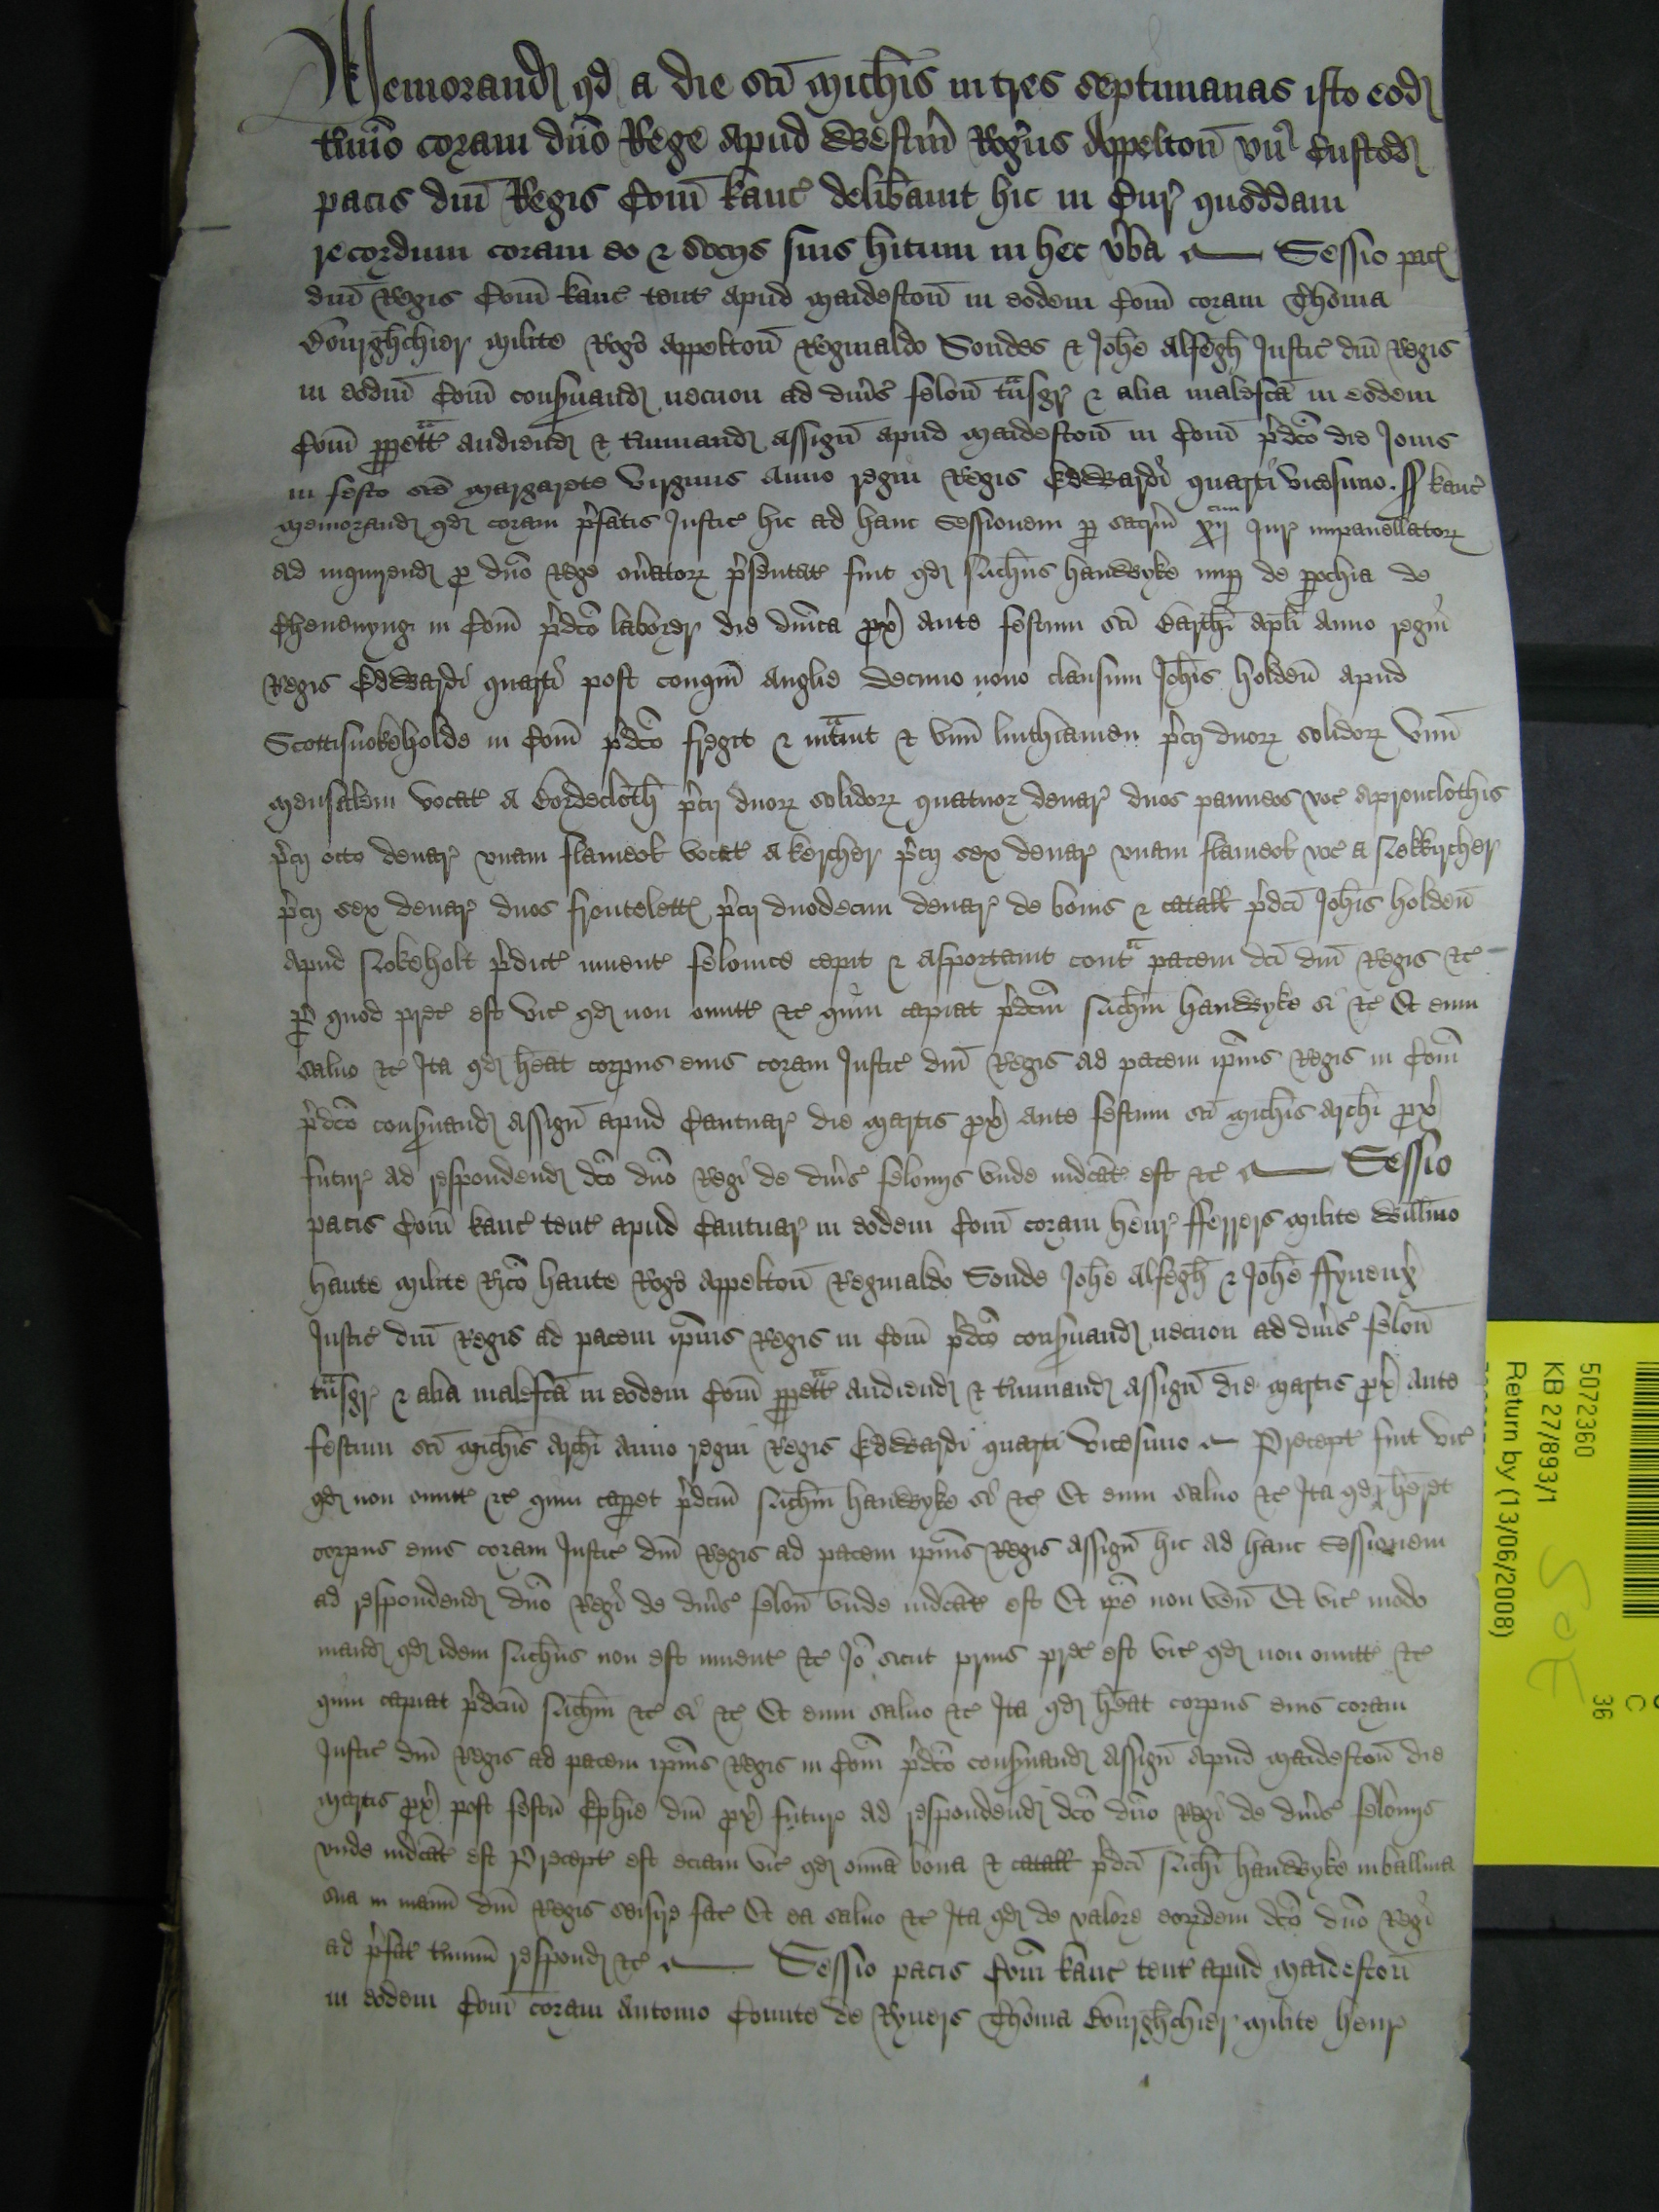 Memorand qd a die sci Michis in tres septimanas isto eodm
tmio coram dno Rege apud Westm Rogus Appelton vn Custod
pacis dni Regis Com Kanc delibavit hic in Cur quoddam
recordum coram eo & socijs suis hitum in hec vba Sessio pacis
dni Regis Com Kanc tent apud Maideston in eodem Com coram Thoma
Bourghchier Milite Rogo Appelton Reginaldo Sondes & Johe Alfegh Justic dni Regis
in eodm Com consvand necnon ad divs felon tnsgr & alia malefca in eodem
Com ppetat audiend & tminand assign apud Maideston in Com pdco die Jovis
in festo sce Margarete Virginis Anno regni Regis Edwardi quarti vicesimo. ss Kanc
Memorand qd coram pfatis Justic hic ad hanc Sessionem p sacrm xij cim Jur impanellator
ad inquirend p dno Rege onator psentat fuit qd Nichus Handwyke nup de pochia de
Chevenyng in Com pdco laborer die dnica px ante festum sci Barthi apli Anno regni
Regis Edwardi quarti post conqm Anglie decimo nono clausum Johis Holden apud
Scottisnokeholde in Com pdco fregit & intavit & vnu linthiamen pcij duor solidor vnu
mensalem vocat a Bordecloth pcij duor solidor quatuor denar duos panneos voc Apronclothis
pcij octo denar vnam flameol vocat a kercher pcij sex denar vnam flameol voc a Nekkircher
pcij sex denar duos fronteletts pcij duodecim denar de bonis & catall pdci Johis Holden
apud Nokeholt pdict invent felonice cepit & asportavit conta pacem dci dni Regis &c
p quod prec est vic qd non omitt &c quin capiat pdcm Nichm Handwyke si &c Et eum
salvo &c Ita qd heat corpus eius coram Justic dni Regis ad pacem ipius Regis in Com
pdco consvand assign apud Cantuar die Martis px ante festum sci Michis archi px
futur ad respondend dco dno Regi de divs felonijs vnde indcat est &c Sessio
pacis Com Kanc tent apud Cantuar in eodem Com coram Henr fferrers Milite Willmo
Haute Milite Rico Haute Rogo Appelton Reginaldo Sonde Johe Alfegh & Johe ffyneux
Justic dni Regis ad pacem ipius Regis in Com pdco consvand necnon ad divs felon
tnsgr & alia malefca in eodem Com ppetat audiend & tminand assign die Martis px ante
festum sci Michis archi Anno regni Regis Edwardi quarti vicesimo Precept fuit vic
qd non omitt &c quin capet pdcm Nichm Handwyke si &c Et eum salvo &c Ita qd heret
corpus eius coram Justic dni Regis ad pacem ipius Regis assign hic ad hanc Sessionem
ad respondend dno Regi de divs felon vnde indcat est Et ipe non ven Et vic modo
mand qd idem Nichus non est invent &c Io sicut prius prec est vic qd non omitt &c
quin capiat pdcm Nichm &c si &c Et eum salvo &c Ita qd heat corpus eius coram
Justic dni Regis ad pacem ipius Regis in Com pdco consvand assign apud Maideston die
Martis px post festu Ephie dni px futur ad respondend dco dno Regi de divs felonijs
vnde indcat est Precept est eciam vic qd omia bona & catall pdci Nichi Handwyke in balliva
sua in manu dni Regis seisire fac Et ea salvo &c Ita qd de valore eordem dco dno Regi
ad pfat tminu respond &c Sessio pacis Com Kanc tent apud Maideston
in eodem Com coram Antonio Comite de Ryvers Thoma Bourghchier Milite Henr
5072360
KB 27/893/1
Return by (13/06/2008)
36
C